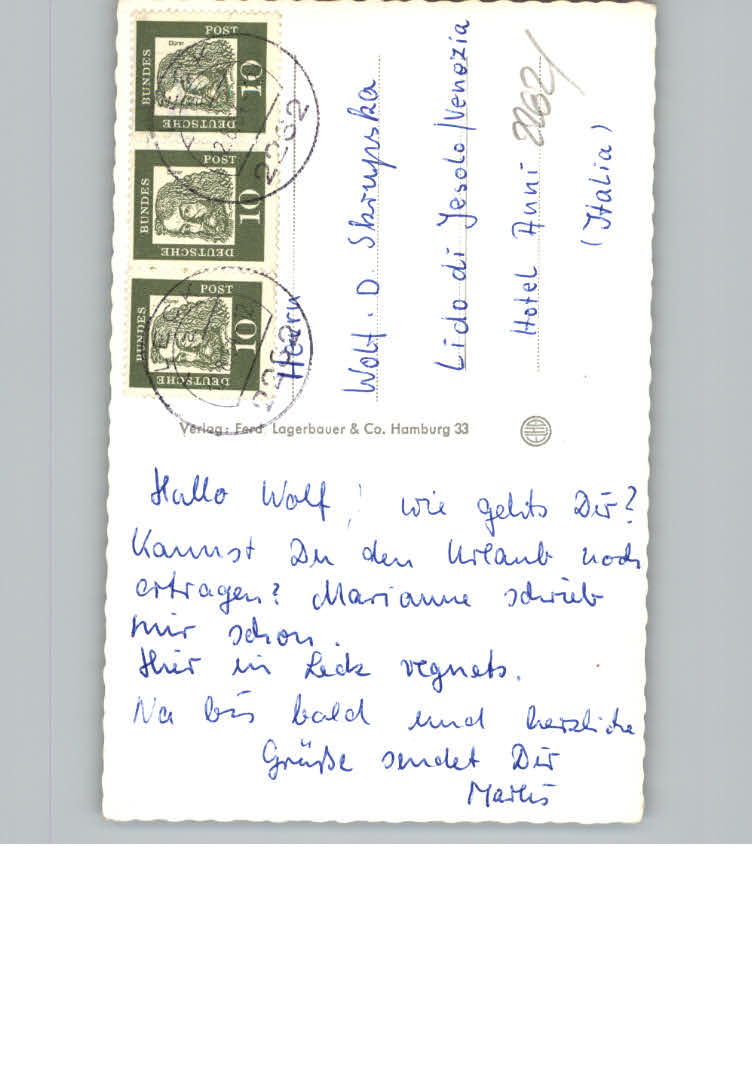 Hallo Wolf! wie gehts Dir?
Kannst Du den Urlaub noch
ertragen? Marianne schrieb
mir schon.
Hier in Leck regnets.
Na bis bald und herzliche
Grüße sendet Dir
Marlis
Verlag: Ferd. Lagerbauer & Co. Hamburg 33
Herrn
Wolf. D. Skrupska
Lido di Jesolo/Venezia
Hotel Anni
(Italia)
2262/
DEUTSCHE BUNDES POST
Dürer
10
DEUTSCHE BUNDES POST
10
DEUTSCHE BUNDES POST
Dürer
10
2262
2262 LECK